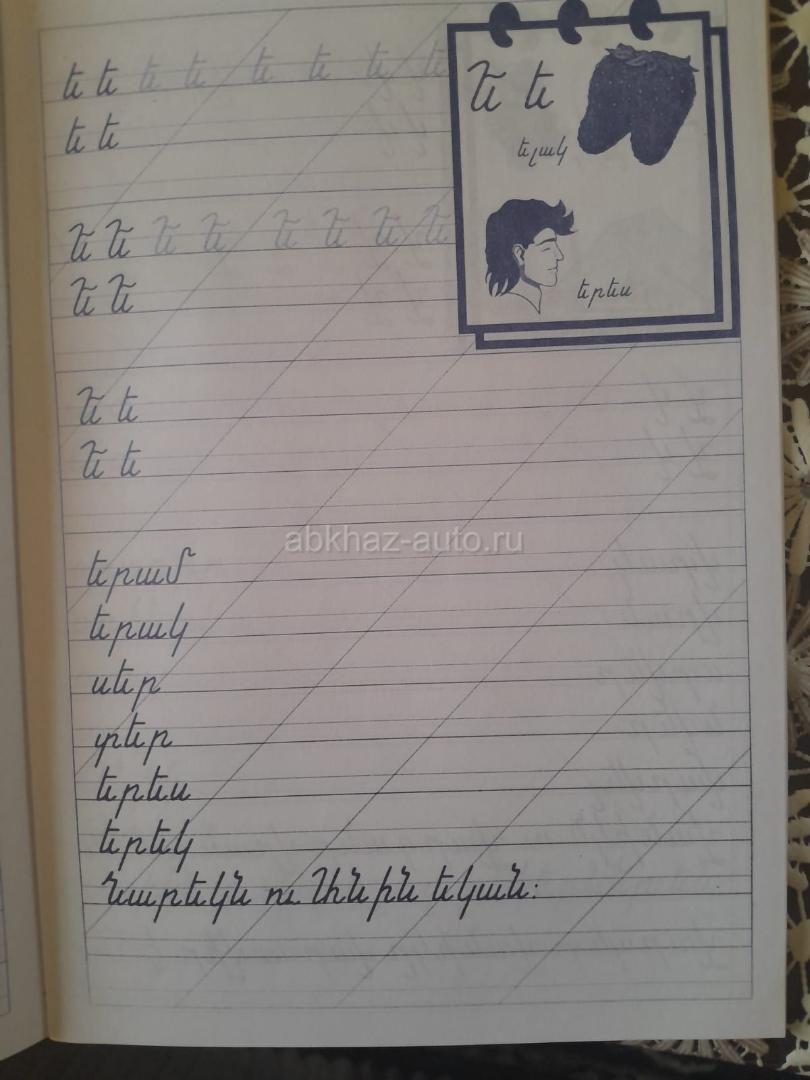 ե ե ե ե ե ե ե ե
ե ե
Ե Ե Ե Ե Ե Ե Ե Ե
Ե Ե
Ե ե
ելակ
երես
Ե ե
Ե ե
abkhaz-auto.ru
երամ
երակ
սեր
տեր
երես
երեկ
Նարեկն ու Անին եկան։